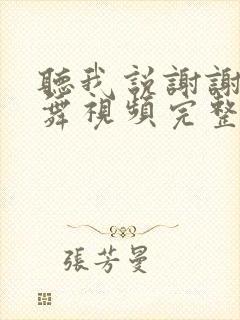 聽我說謝謝
舞視頻完整
張芳曼